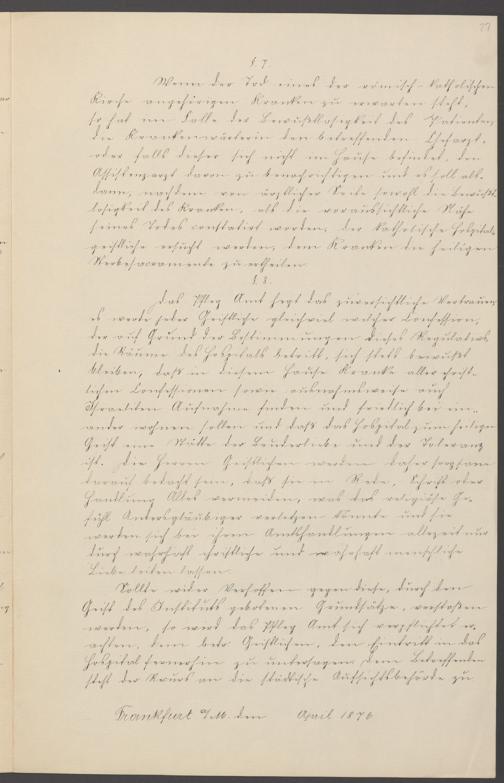 77
§. 7.
Wenn der Tod eines der römisch-katholischen
Kirche angehörigen Kranken zu erwarten steht,
so hat im Falle der Bewußtlosigkeit des Patienten,
die Krankenwärterin den betreffenden Chefarzt,
oder falls dieser sich nicht im Hause befindet, den
Assistenzarzt davon zu benachrichtigen und es soll als-
dann, nachdem von ärztlicher Seite sowohl die Bewußt-
losigkeit des Kranken, als die voraussichtliche Nähe
seines Todes constatirt worden, der katholische Hospital-
geistliche ersucht werden, dem Kranken die heiligen
Sterbesacramente zu ertheilen
§. 8.
Das Pfleg Amt hegt das zuversichtliche Vertrauen,
es werde jeder Geistliche gleichviel welcher Confession,
der auf Grund der Bestimmungen dieses Regulativs
die Räume des Hospitals betritt, sich stets bewußt
bleiben, daß in diesem Hause Kranke aller christ-
lichen Confessionen sowie ausnahmsweise auch
Israeliten Aufnahme finden und friedlich bei ein-
ander wohnen sollen und daß das Hospital zum heiligen
Geist eine Stätte der Bruderliebe und der Toleranz
ist. Die Herren Geistlichen werden daher sorgsam
darauf bedacht sein, daß sie in Rede, Schrift oder
Handlung Alles vermeiden, was das religiöse Ge-
fühl Andersgläubiger verletzen könnte und sie
werden sich bei ihren Amtshandlungen allezeit nur
durch wahrhaft christliche und wahrhaft menschliche
Liebe leiten lassen.
Sollte wider Verhoffen gegen diese, durch den
Geist des Instituts gebotenen Grundsätze, verstoßen
werden, so wird das Pfleg Amt sich verpflichtet er-
achten, dem betr. Geistlichen, den Eintritt in das
Hospital fernerhin zu untersagen dem Betreffenden
steht der Recurs an die städtische Aufsichtsbehörde zu
Frankfurt a/M. den April 1876